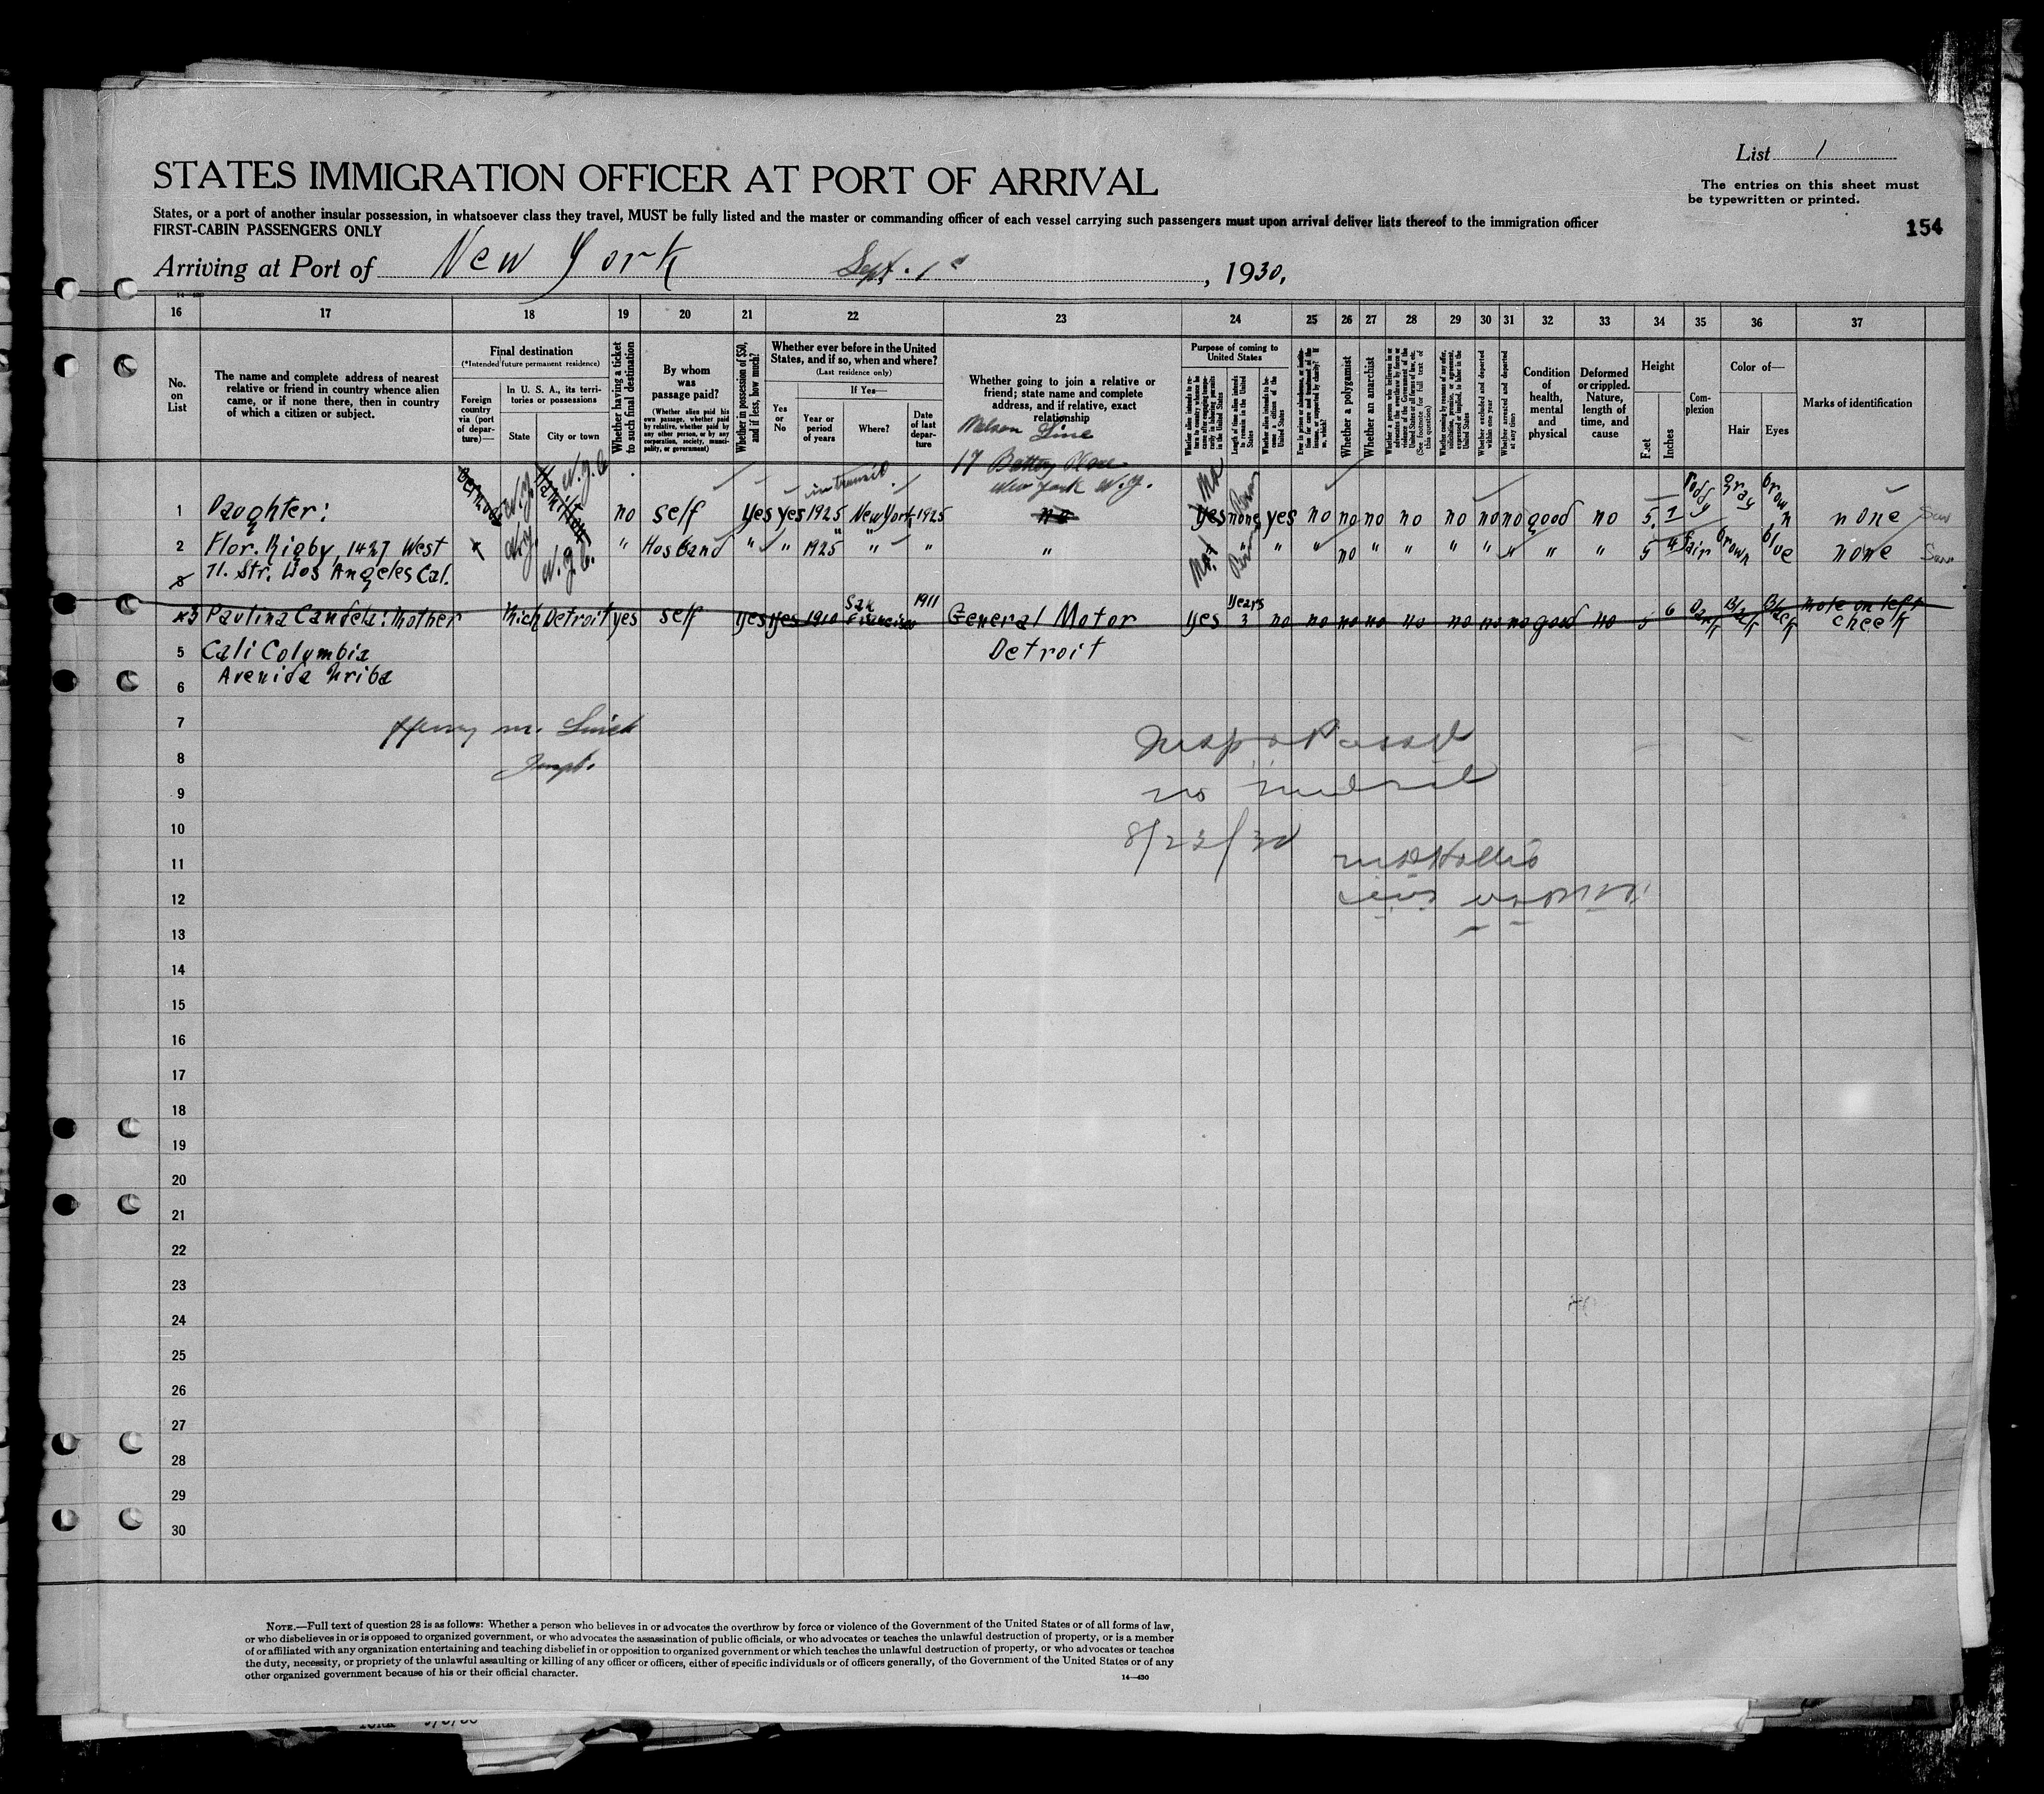 List 1
STATES IMMIGRATION OFFICER AT PORT OF ARRIVAL
The entries on this sheet must
be typewritten or printed.
States, or a port of another insular possession, in whatsoever class they travel, MUST be fully listed and the master or commanding officer of each vessel carrying such passengers must upon arrival deliver lists thereof to the immigration officer
FIRST-CABIN PASSENGERS ONLY
154
Arriving at Port of New York Sept. 1st, 1930.
16 17 18 19 20 21 22 23 24 25 26 27 28 29 30 31 32 33 34 35 36 37
No. on List
The name and complete address of nearest
relative or friend in country whence alien
came, or if none there, then in country
of which a citizen or subject.
Final destination
(*Intended future permanent residence)
Foreign country via (port of departure)—
In U. S. A., its territories or possessions
State
City or town
Whether having a ticket to such final destination
By whom was passage paid?
(Whether alien paid his own passage, whether paid by relative, whether paid by any other person, or by any corporation, society, municipality, or government)
Whether in possession of $50, and if less, how much?
Whether ever before in the United States, and if so, when and where?
(Last residence only)
If Yes—
Yes or No
Year or period of years
Where?
Date of last departure
Whether going to join a relative or
friend; state name and complete
address, and if relative, exact
relationship
Purpose of coming to United States
Whether alien intends to return to country whence he came after engaging temporarily in laboring pursuits in the United States
Length of time alien intends to remain in the United States
Whether alien intends to become a citizen of the United States
Ever in prison or almshouse, or institution for care and treatment of the insane, or supported by charity? If so, which?
Whether a polygamist
Whether an anarchist
Whether a person who believes in or advocates the overthrow by force or violence of the Government of the United States or all forms of law, etc. (See footnote for full text of this question)
Whether coming by reason of any offer, solicitation, promise, or agreement, expressed or implied, to labor in the United States
Whether excluded and deported within one year
Whether arrested and deported at any time
Condition of health, mental and physical
Deformed or crippled. Nature, length of time, and cause
Height
Feet
Inches
Complexion
Color of—
Hair
Eyes
Marks of identification
Line
17 Battery Place
New York N.Y.
in transit
1 Daughter: Bermuda N.Y. Hamilton N.Y.C. no self yes yes 1925 New York 1925 no yes none yes no no no no no no no good no 5 1 ruddy gray brown none
2 Flor. Rigby, 1427 West N.Y. N.Y.C. " Husband " " 1925 " " " " " " no " " " " " " " 5 4 fair brown blue none
71. Str. Los Angeles Cal.
3
3 Paulina Candela: Mother Mich Detroit yes self yes yes 1910 San Francisco 1911 General Motor yes years 3 no no no no no no no no good no 5 6 Dark Black Black Mole on left cheek
5 Cali Columbia Detroit
Avenida Uriba
6
7
Henry M.
8
9
no
10
8/23/30
11
12
13
14
15
16
17
18
19
20
21
22
23
24
25
26
27
28
29
30
NOTE.—Full text of question 28 is as follows: Whether a person who believes in or advocates the overthrow by force or violence of the Government of the United States or of all forms of law,
or who disbelieves in or is opposed to organized government, or who advocates the assassination of public officials, or who advocates or teaches the unlawful destruction of property, or is a member
of or affiliated with any organization entertaining and teaching disbelief in or opposition to organized government or which teaches the unlawful destruction of property, or who advocates or teaches
the duty, necessity, or propriety of the unlawful assaulting or killing of any officer or officers, either of specific individuals or of officers generally, of the Government of the United States or of any
other organized government because of his or their official character.
14—430